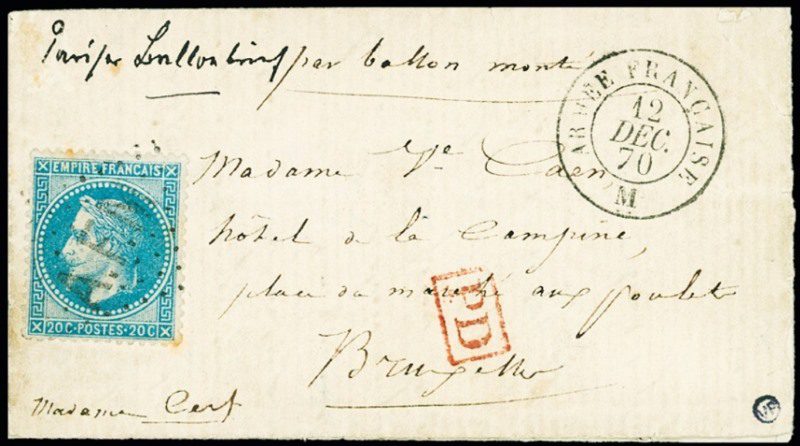 Pariser Ballonbrief par ballon monté
ARMÉE FRANÇAISE
12
DÉC.
70
M
EMPIRE FRANÇAIS
20 C · POSTES · 20 C
Madame Ve Caen
hôtel de la Campine,
place du marché aux poulets
PD
Bruxelles
Madame Cerf